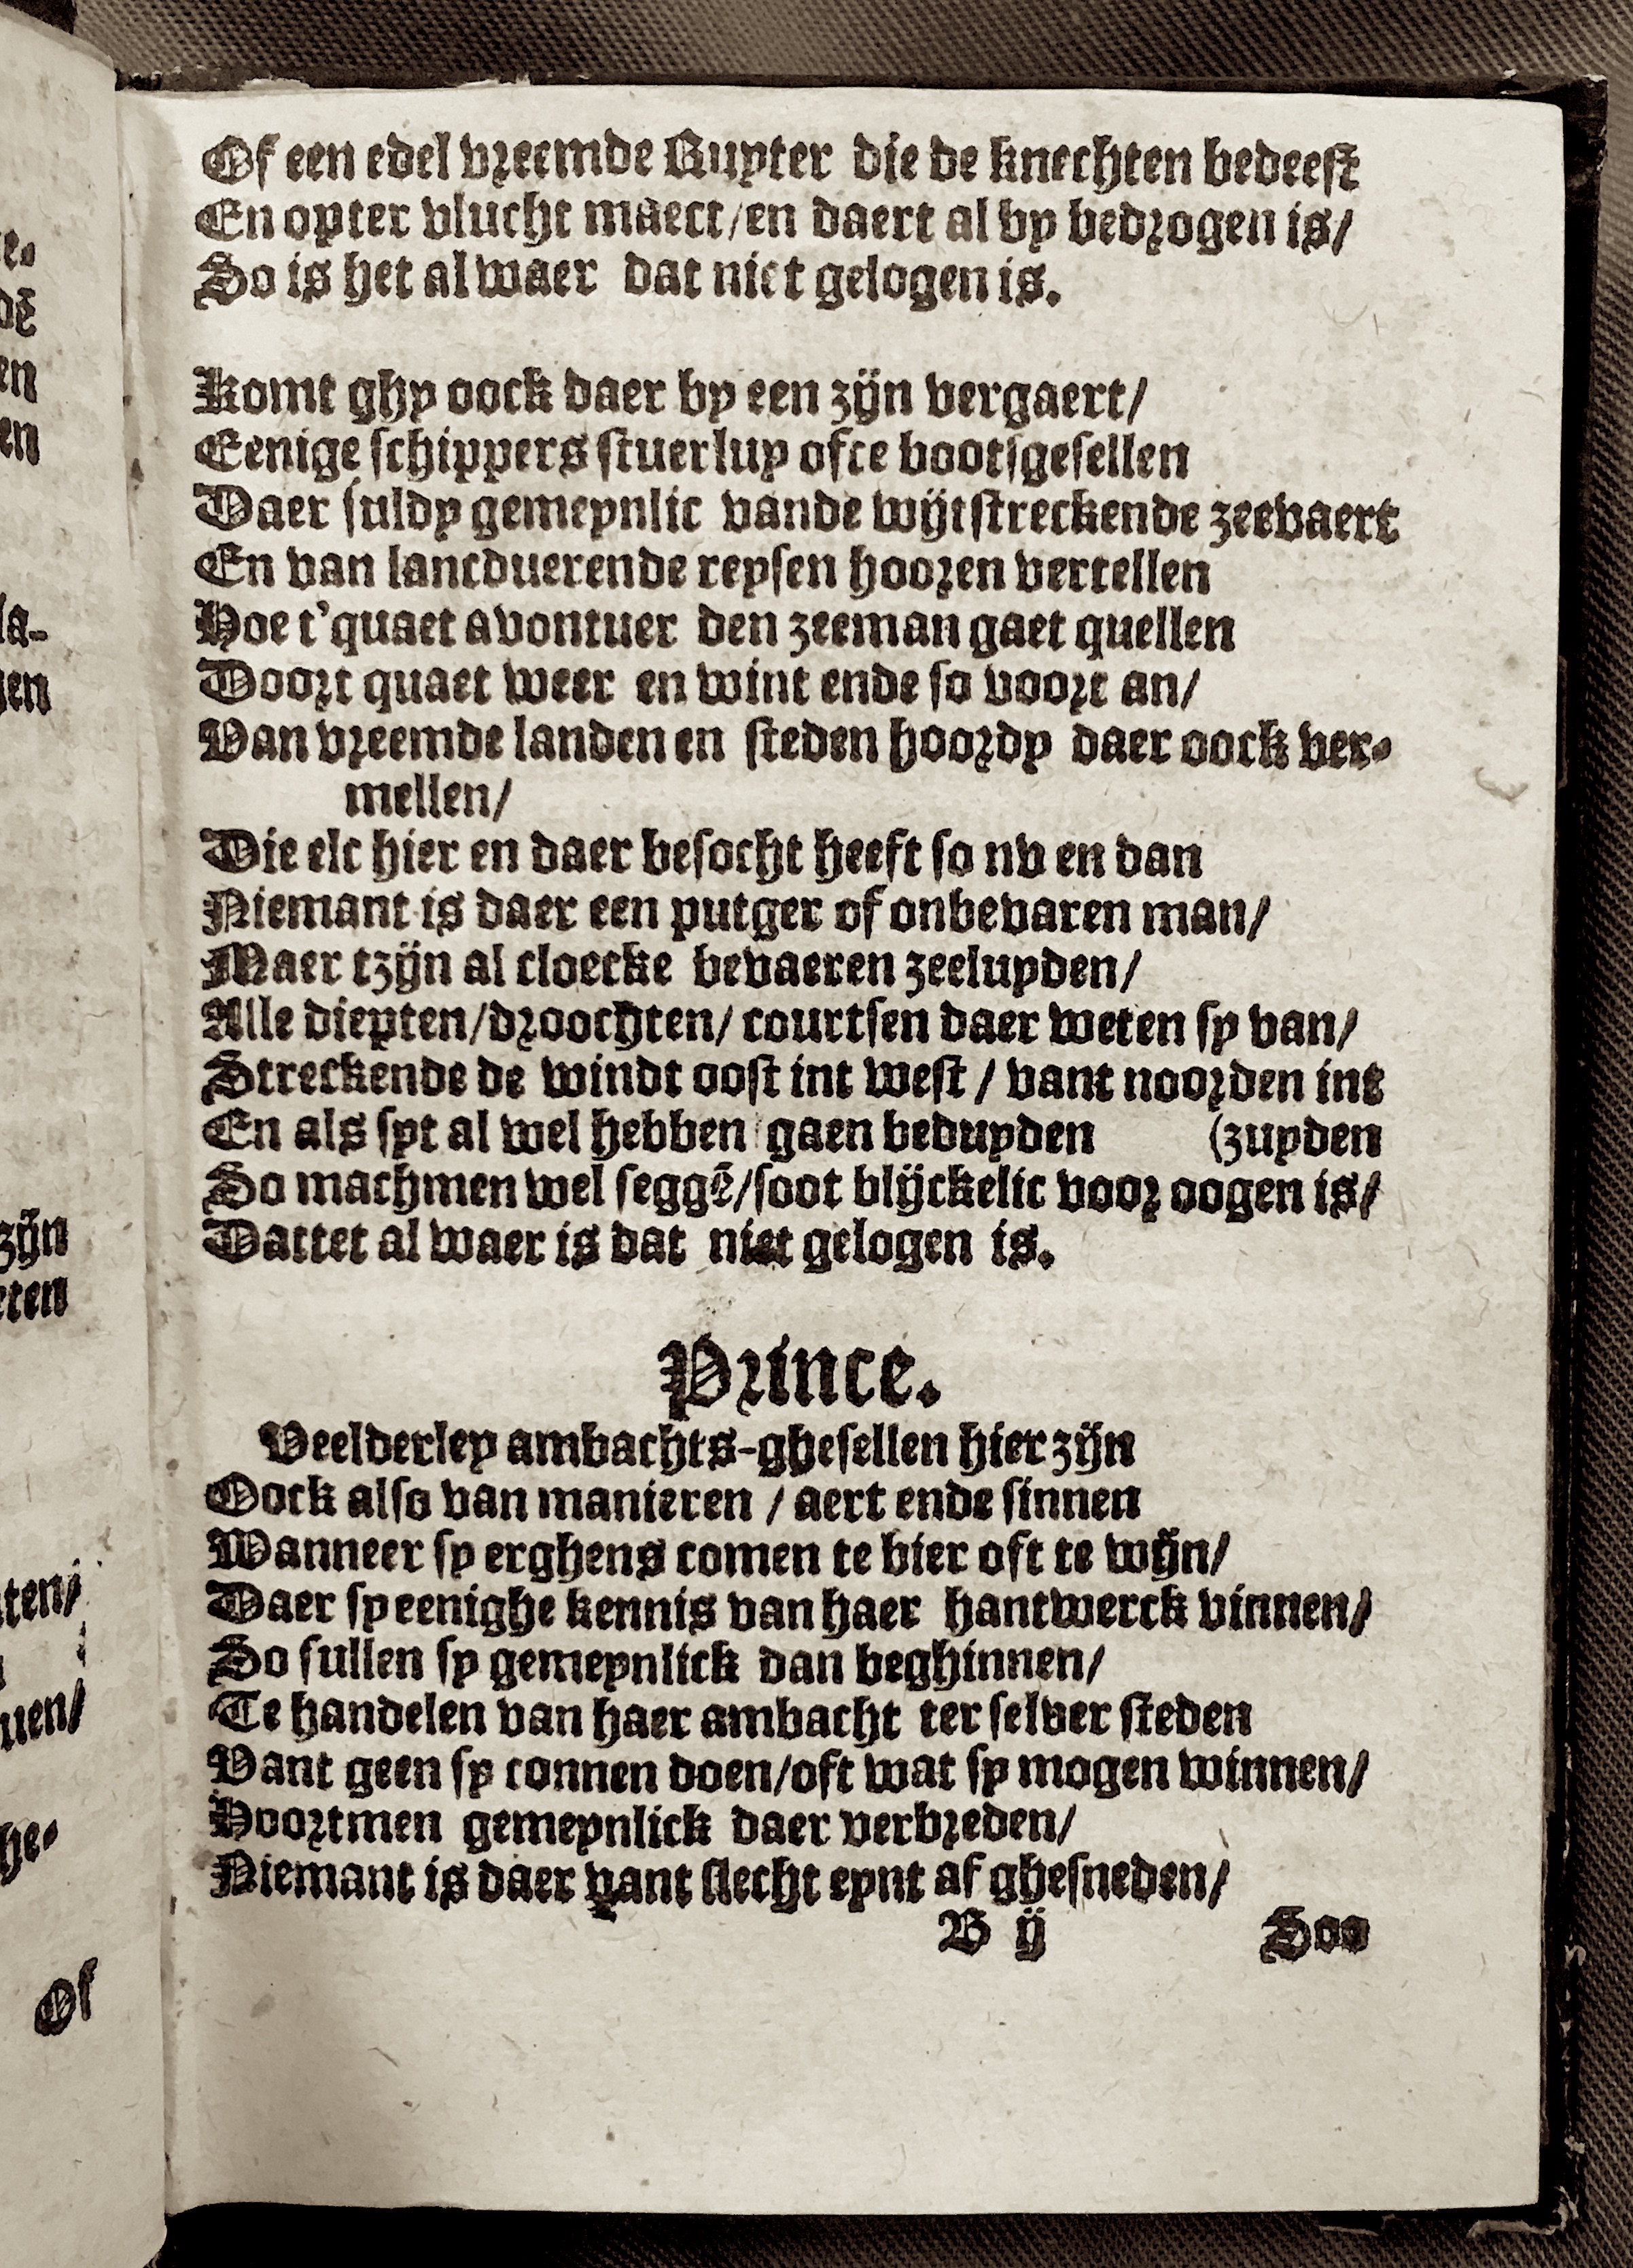 Of een edel vreemde Ruyter die de knechten bedeest
En opter vlucht maect/en daert al by bedrogen is/
So is het al waer dat niet gelogen is.
Komt ghy oock daer by een zijn vergaert/
Eenige schippers stuerluy ofte bootsgesellen
Daer suldy gemeynlic vande wijtstreckende zeevaert
En van lancduerende reysen hooren vertellen
Hoe t'quaet avontuer den zeeman gaet quellen
Doort quaet weer en wint ende so voort an/
Van vreemde landen en steden hoordy daer oock ver-
mellen/
Die elc hier en daer besocht heeft so nv en dan
Niemant is daer een putger of onbevaren man/
Maer tzijn al cloecke bevaeren zeeluyden/
Alle diepten/droochten/ courtsen daer weten sy van/
Streckende de windt oost int west / vant noorden int
En als syt al wel hebben gaen beduyden (zuyden
So machmen wel seggē/soot blijckelic voor oogen is/
Dattet al waer is dat niet gelogen is.
Prince.
Veelderley ambachts-ghesellen hier zijn
Oock also van manieren / aert ende sinnen
Wanneer sy erghens comen te bier oft te wijn/
Daer sy eenighe kennis van haer hantwerck vinnen/
So sullen sy gemeynlick dan beghinnen/
Te handelen van haer ambacht ter selver steden
Vant geen sy connen doen/oft wat sy mogen winnen/
Hoortmen gemeynlick daer verbreden/
Niemant is daer vant slecht eynt af ghesneden/
B ij Soo
te-
dē
en
en
la-
gen
zijn
eten
ten/
nen/
he-
Of